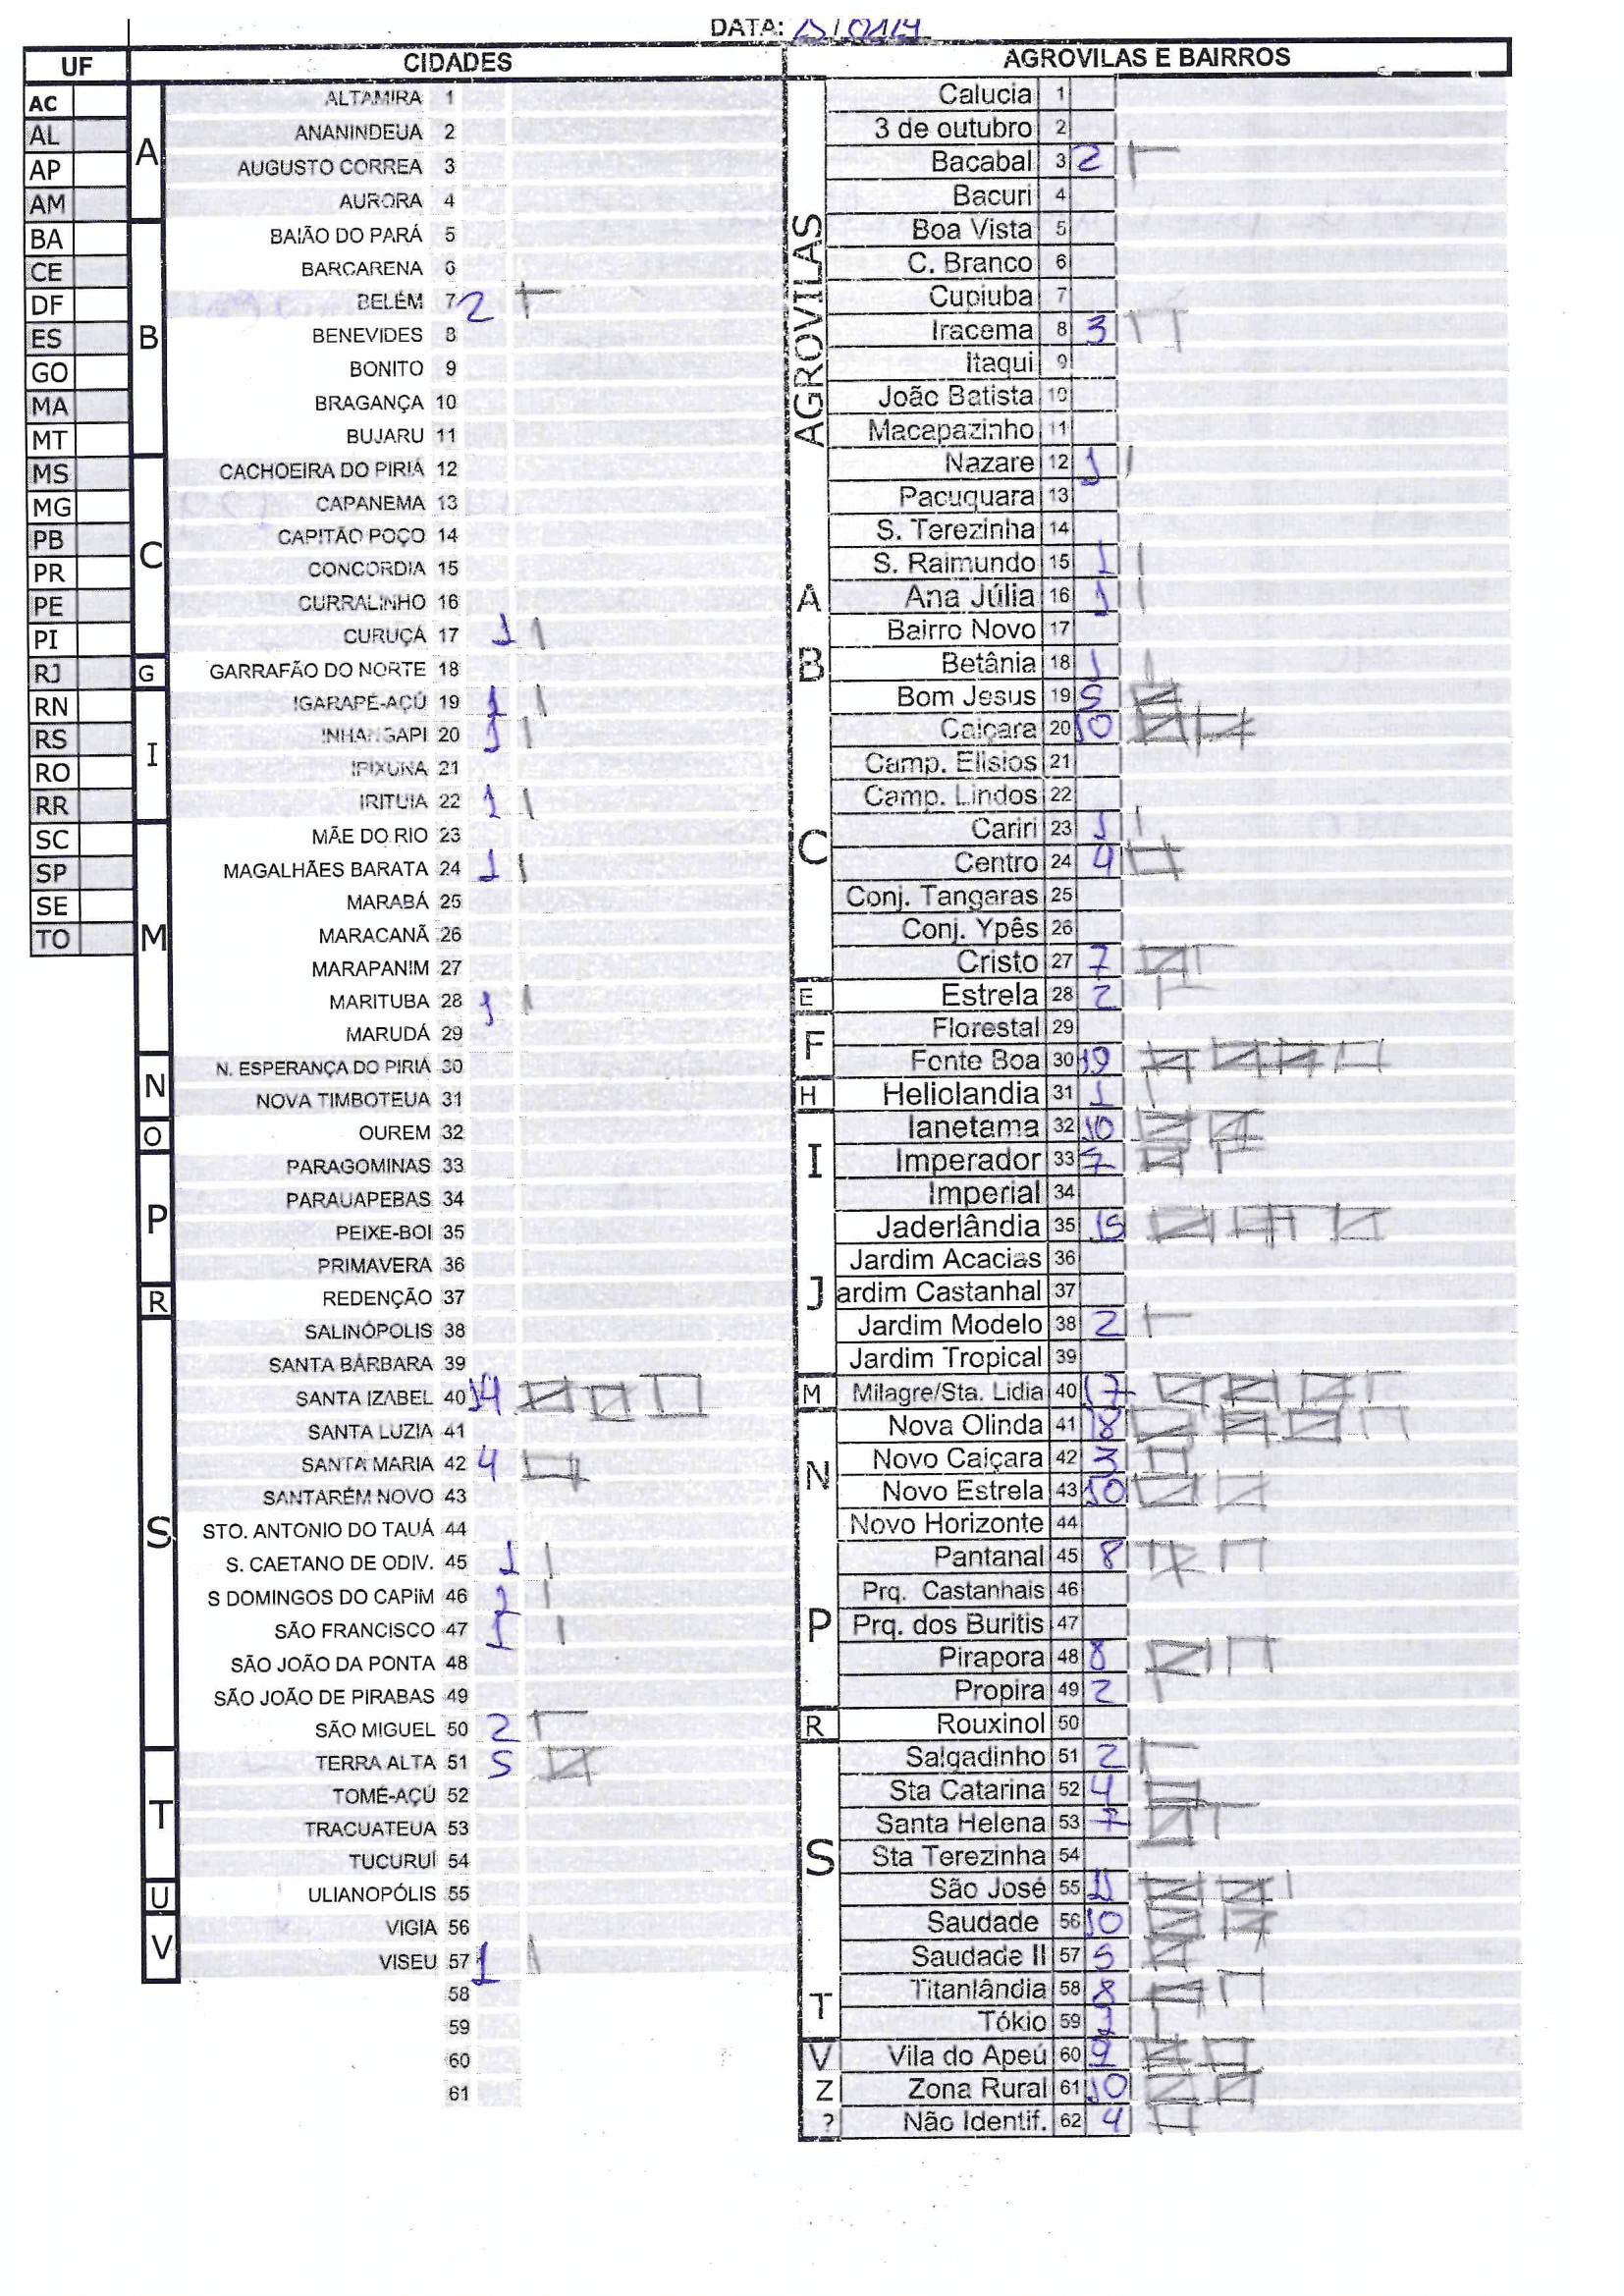 DATA:
UF CIDADES AGROVILAS E BAIRROS
AC
AL
AP
AM
BA
CE
DF
ES
GO
MA
MT
MS
MG
PB
PR
PE
PI
RJ
RN
RS
RO
RR
SC
SP
SE
TO
A
B
C
G
I
M
N
O
P
R
S
T
U
V
ALTAMIRA 1
ANANINDEUA 2
AUGUSTO CORREA 3
AURORA 4
BAIÃO DO PARÁ 5
BARCARENA 6
BELÉM 7 2
BENEVIDES 8
BONITO 9
BRAGANÇA 10
BUJARU 11
CACHOEIRA DO PIRIÁ 12
CAPANEMA 13
CAPITÃO POÇO 14
CONCORDIA 15
CURRALINHO 16
CURUÇÁ 17 1
GARRAFÃO DO NORTE 18
IGARAPÉ-AÇÚ 19 1
INHANGAPI 20 1
IPIXUNA 21
IRITUIA 22 1
MÃE DO RIO 23
MAGALHÃES BARATA 24 1
MARABÁ 25
MARACANÃ 26
MARAPANIM 27
MARITUBA 28 1
MARUDÁ 29
N. ESPERANÇA DO PIRIÁ 30
NOVA TIMBOTEUA 31
OUREM 32
PARAGOMINAS 33
PARAUAPEBAS 34
PEIXE-BOI 35
PRIMAVERA 36
REDENÇÃO 37
SALINÓPOLIS 38
SANTA BÁRBARA 39
SANTA IZABEL 40 14
SANTA LUZIA 41
SANTA MARIA 42 4
SANTARÉM NOVO 43
STO. ANTONIO DO TAUÁ 44
S. CAETANO DE ODIV. 45 1
S DOMINGOS DO CAPIM 46 1
SÃO FRANCISCO 47 1
SÃO JOÃO DA PONTA 48
SÃO JOÃO DE PIRABAS 49
SÃO MIGUEL 50 2
TERRA ALTA 51 5
TOMÉ-AÇÚ 52
TRACUATEUA 53
TUCURUÍ 54
ULIANOPÓLIS 55
VIGIA 56
VISEU 57 1
58
59
60
61
AGROVILAS
A
B
C
E
F
H
I
J
M
N
P
R
S
T
V
Z
?
Calucia 1
3 de outubro 2
Bacabal 3 2
Bacuri 4
Boa Vista 5
C. Branco 6
Cupiuba 7
Iracema 8 3
Itaqui 9
João Batista 10
Macapazinho 11
Nazare 12 1
Pacuquara 13
S. Terezinha 14
S. Raimundo 15 1
Ana Júlia 16 1
Bairro Novo 17
Betânia 18 1
Bom Jesus 19 5
Caiçara 20 10
Camp. Elisios 21
Camp. Lindos 22
Cariri 23 1
Centro 24 4
Conj. Tangaras 25
Conj. Ypês 26
Cristo 27 7
Estrela 28 2
Florestal 29
Fonte Boa 30 19
Heliolandia 31 1
Ianetama 32 10
Imperador 33 7
Imperial 34
Jaderlândia 35 15
Jardim Acacias 36
ardim Castanhal 37
Jardim Modelo 38 2
Jardim Tropical 39
Milagre/Sta. Lidia 40 17
Nova Olinda 41 18
Novo Caiçara 42 3
Novo Estrela 43 10
Novo Horizonte 44
Pantanal 45 8
Prq. Castanhais 46
Prq. dos Buritis 47
Pirapora 48 8
Propira 49 2
Rouxinol 50
Salgadinho 51 2
Sta Catarina 52 4
Santa Helena 53 7
Sta Terezinha 54
São José 55 11
Saudade 56 10
Saudade II 57 5
Titanlândia 58 8
Tókio 59 1
Vila do Apeú 60 9
Zona Rural 61 10
Não Identif. 62 4